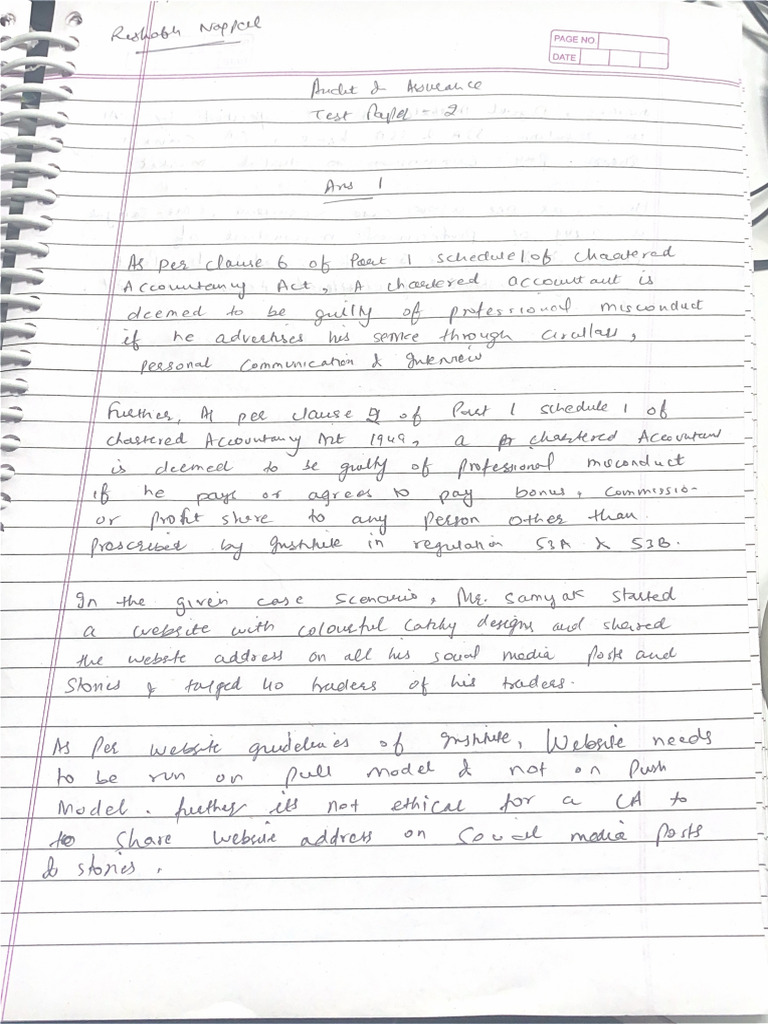 Rishabh Nappal
PAGE NO
DATE
Audit & Assurance
Test Paper - 2
Ans 1
As per clause 6 of Part 1 schedule 1 of chartered
Accountancy Act, A chartered accountant is
deemed to be guilty of professional misconduct
if he advertises his service through circulars,
personal communication & Interview
Further, As per clause 2 of Part 1 schedule 1 of
chartered Accountancy Act 1949, a chartered Accountant
is deemed to be guilty of professional misconduct
if he pays or agrees to pay bonus, commissio-
or profit share to any person other than
proscribed by Institute in regulation 53A & 53B.
In the given case scenario, Mr. Samyak started
a website with colourful catchy designs and shared
the website address on all his social media posts and
stories & tagged 40 traders of his traders.
As Per website guidelines of Institute, Website needs
to be run on pull model & not on Push
Model. further its not ethical for a CA to
to share website address on social media posts
& stories.